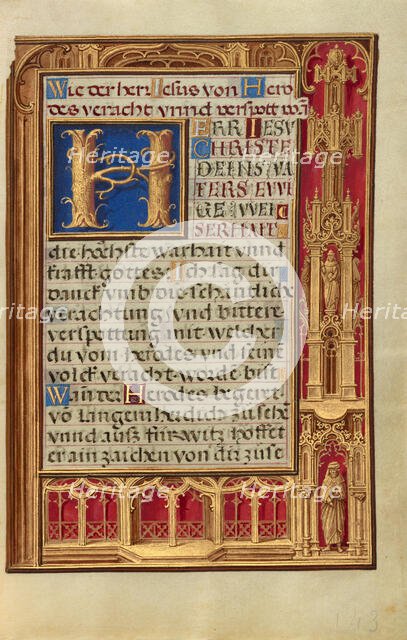 Wie der herr Jesus von Hero
des veracht vnnd verspott
HERR IESV
CHRISTE
DEINS VA
TERS EWI
GE WEI
SERHAIT
die hochste warhait vnnd
krafft gottes Ich sag dir
danck vmb die schantliche
verachtung vnd bittere
verspottung mit welcher
du vom herodes vnd seim
volck veracht worde bist
Wan der Herodes begeret
vo langem heidich zu sehe
vnnd ausz furwitz hoffet
er ain zaichen von dir zu se
Heritage
Heritage
Heritage
Heritage
Heritage
Heritage
143